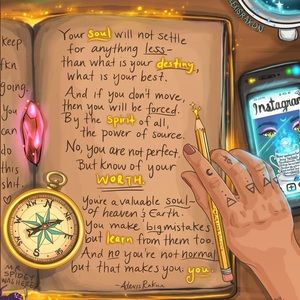 keep
fkn
going.
You
can
do
this
shit.
MR
SPIDEY
WAS HERE
Your Soul will not settle
for anything less-
than what is your destiny,
what is your best.
And if you don't move,
then you will be forced.
By the Spirit of all,
the power of source.
No, you are not perfect.
But know of your
WORTH.
You're a valuable soul-
of heaven & Earth.
You make big mistakes
but learn from them too.
And no you're not normal
but that makes you you.
Instagram